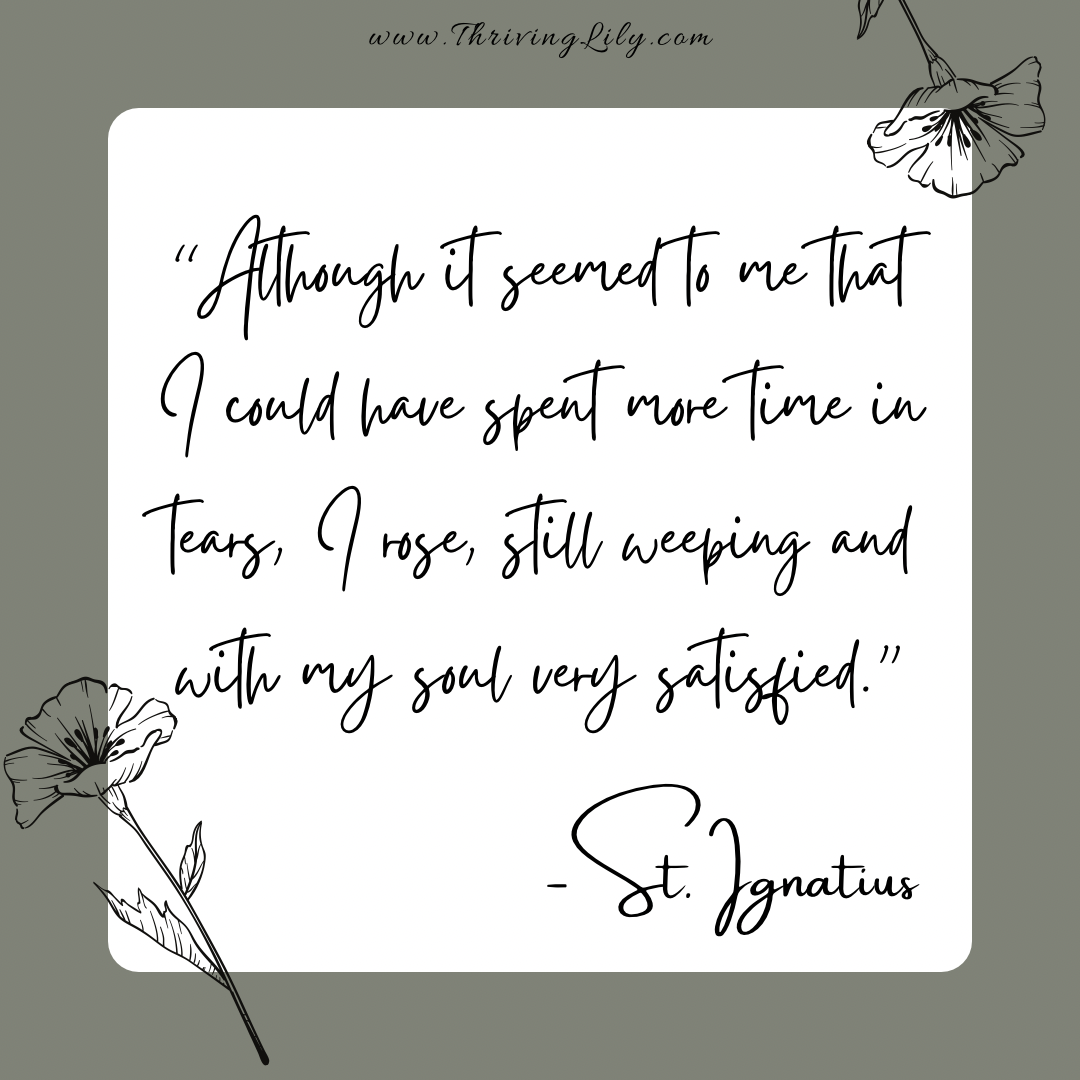 www.ThrivingLily.com
“Although it seemed to me that
I could have spent more time in
tears, I rose, still weeping and
with my soul very satisfied.”
- St. Ignatius